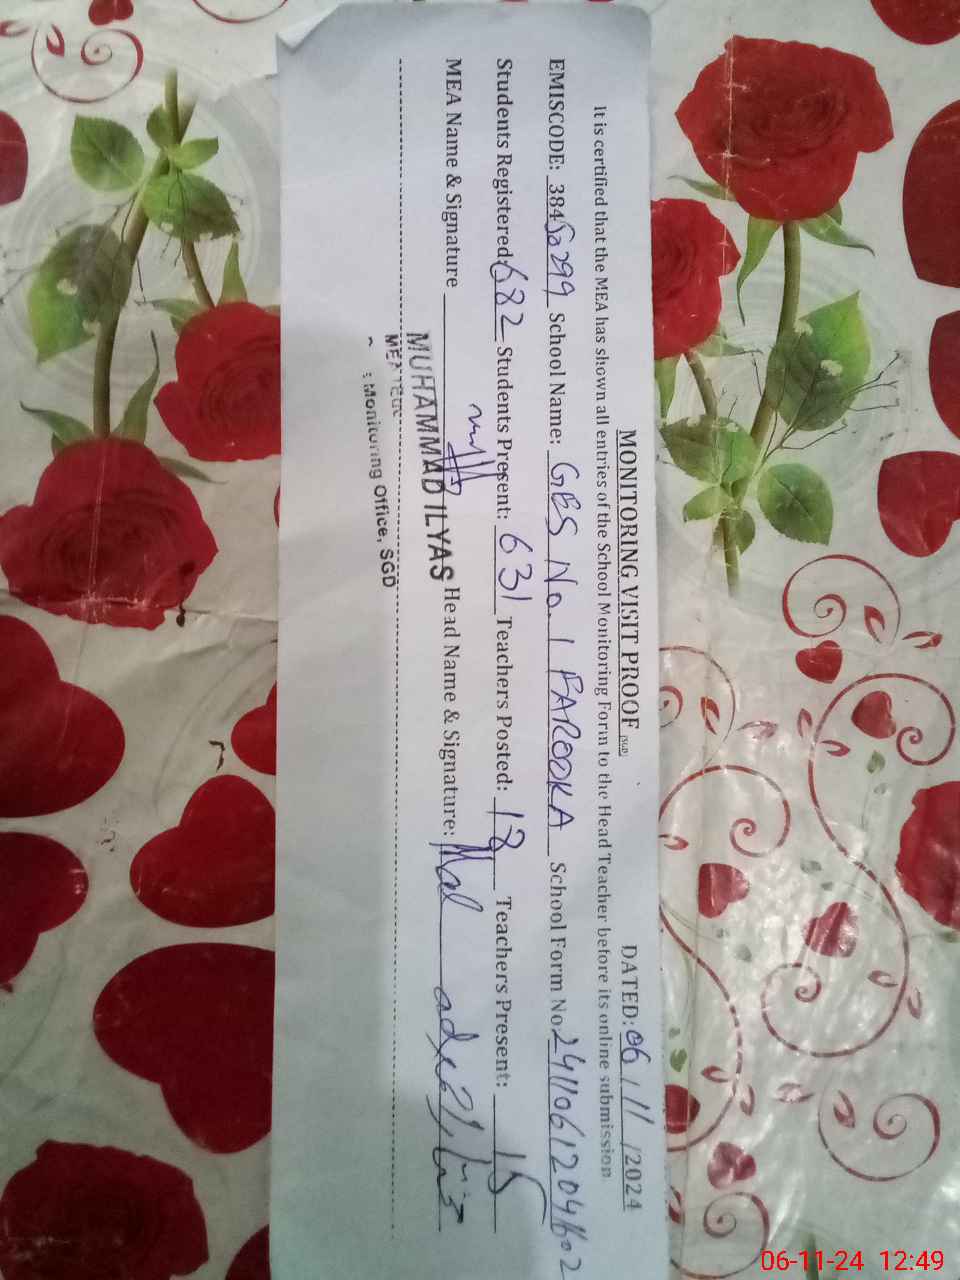 MONITORING VISIT PROOF (SGD) DATED: 06/11/2024
It is certified that the MEA has shown all entries of the School Monitoring Form to the Head Teacher before its online submission
EMISCODE: 384 299 School Name: GES No. 1 FAROOKA School Form No
Students Registered 682 Students Present: 631 Teachers Posted: 18 Teachers Present: 15
MEA Name & Signature Head Name & Signature:
MUHAMMAD ILYAS
MEA
Monitoring Office, SGD
06-11-24 12:49